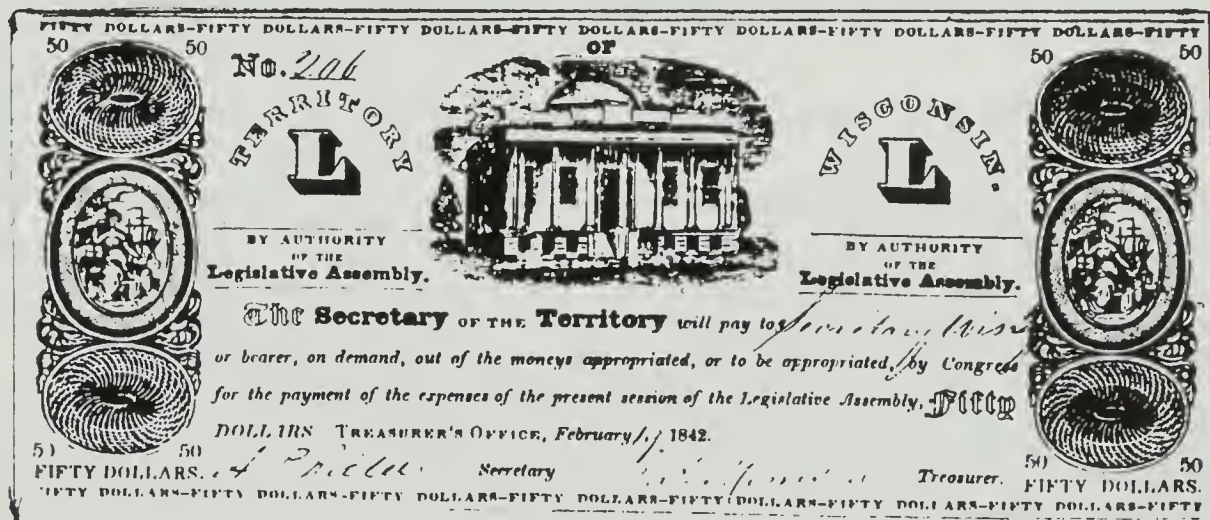 FIFTY DOLLARS-FIFTY DOLLARS-FIFTY DOLLARS-FIFTY DOLLARS-FIFTY DOLLARS-FIFTY DOLLARS-FIFTY DOLLARS-FIFTY
50 50 OF 50 50
No. 206
TERRITORY WISCONSIN.
L L
BY AUTHORITY BY AUTHORITY
OF THE OF THE
Legislative Assembly. Legislative Assembly.
The Secretary OF THE Territory will pay to
or bearer, on demand, out of the moneys appropriated, or to be appropriated, by Congress
for the payment of the expenses of the present session of the Legislative Assembly, Fifty
DOLLARS TREASURER'S OFFICE, February 1842.
50 50 Secretary Treasurer. 50 50
FIFTY DOLLARS. FIFTY DOLLARS.
FIFTY DOLLARS-FIFTY DOLLARS-FIFTY DOLLARS-FIFTY DOLLARS-FIFTY DOLLARS-FIFTY DOLLARS-FIFTY